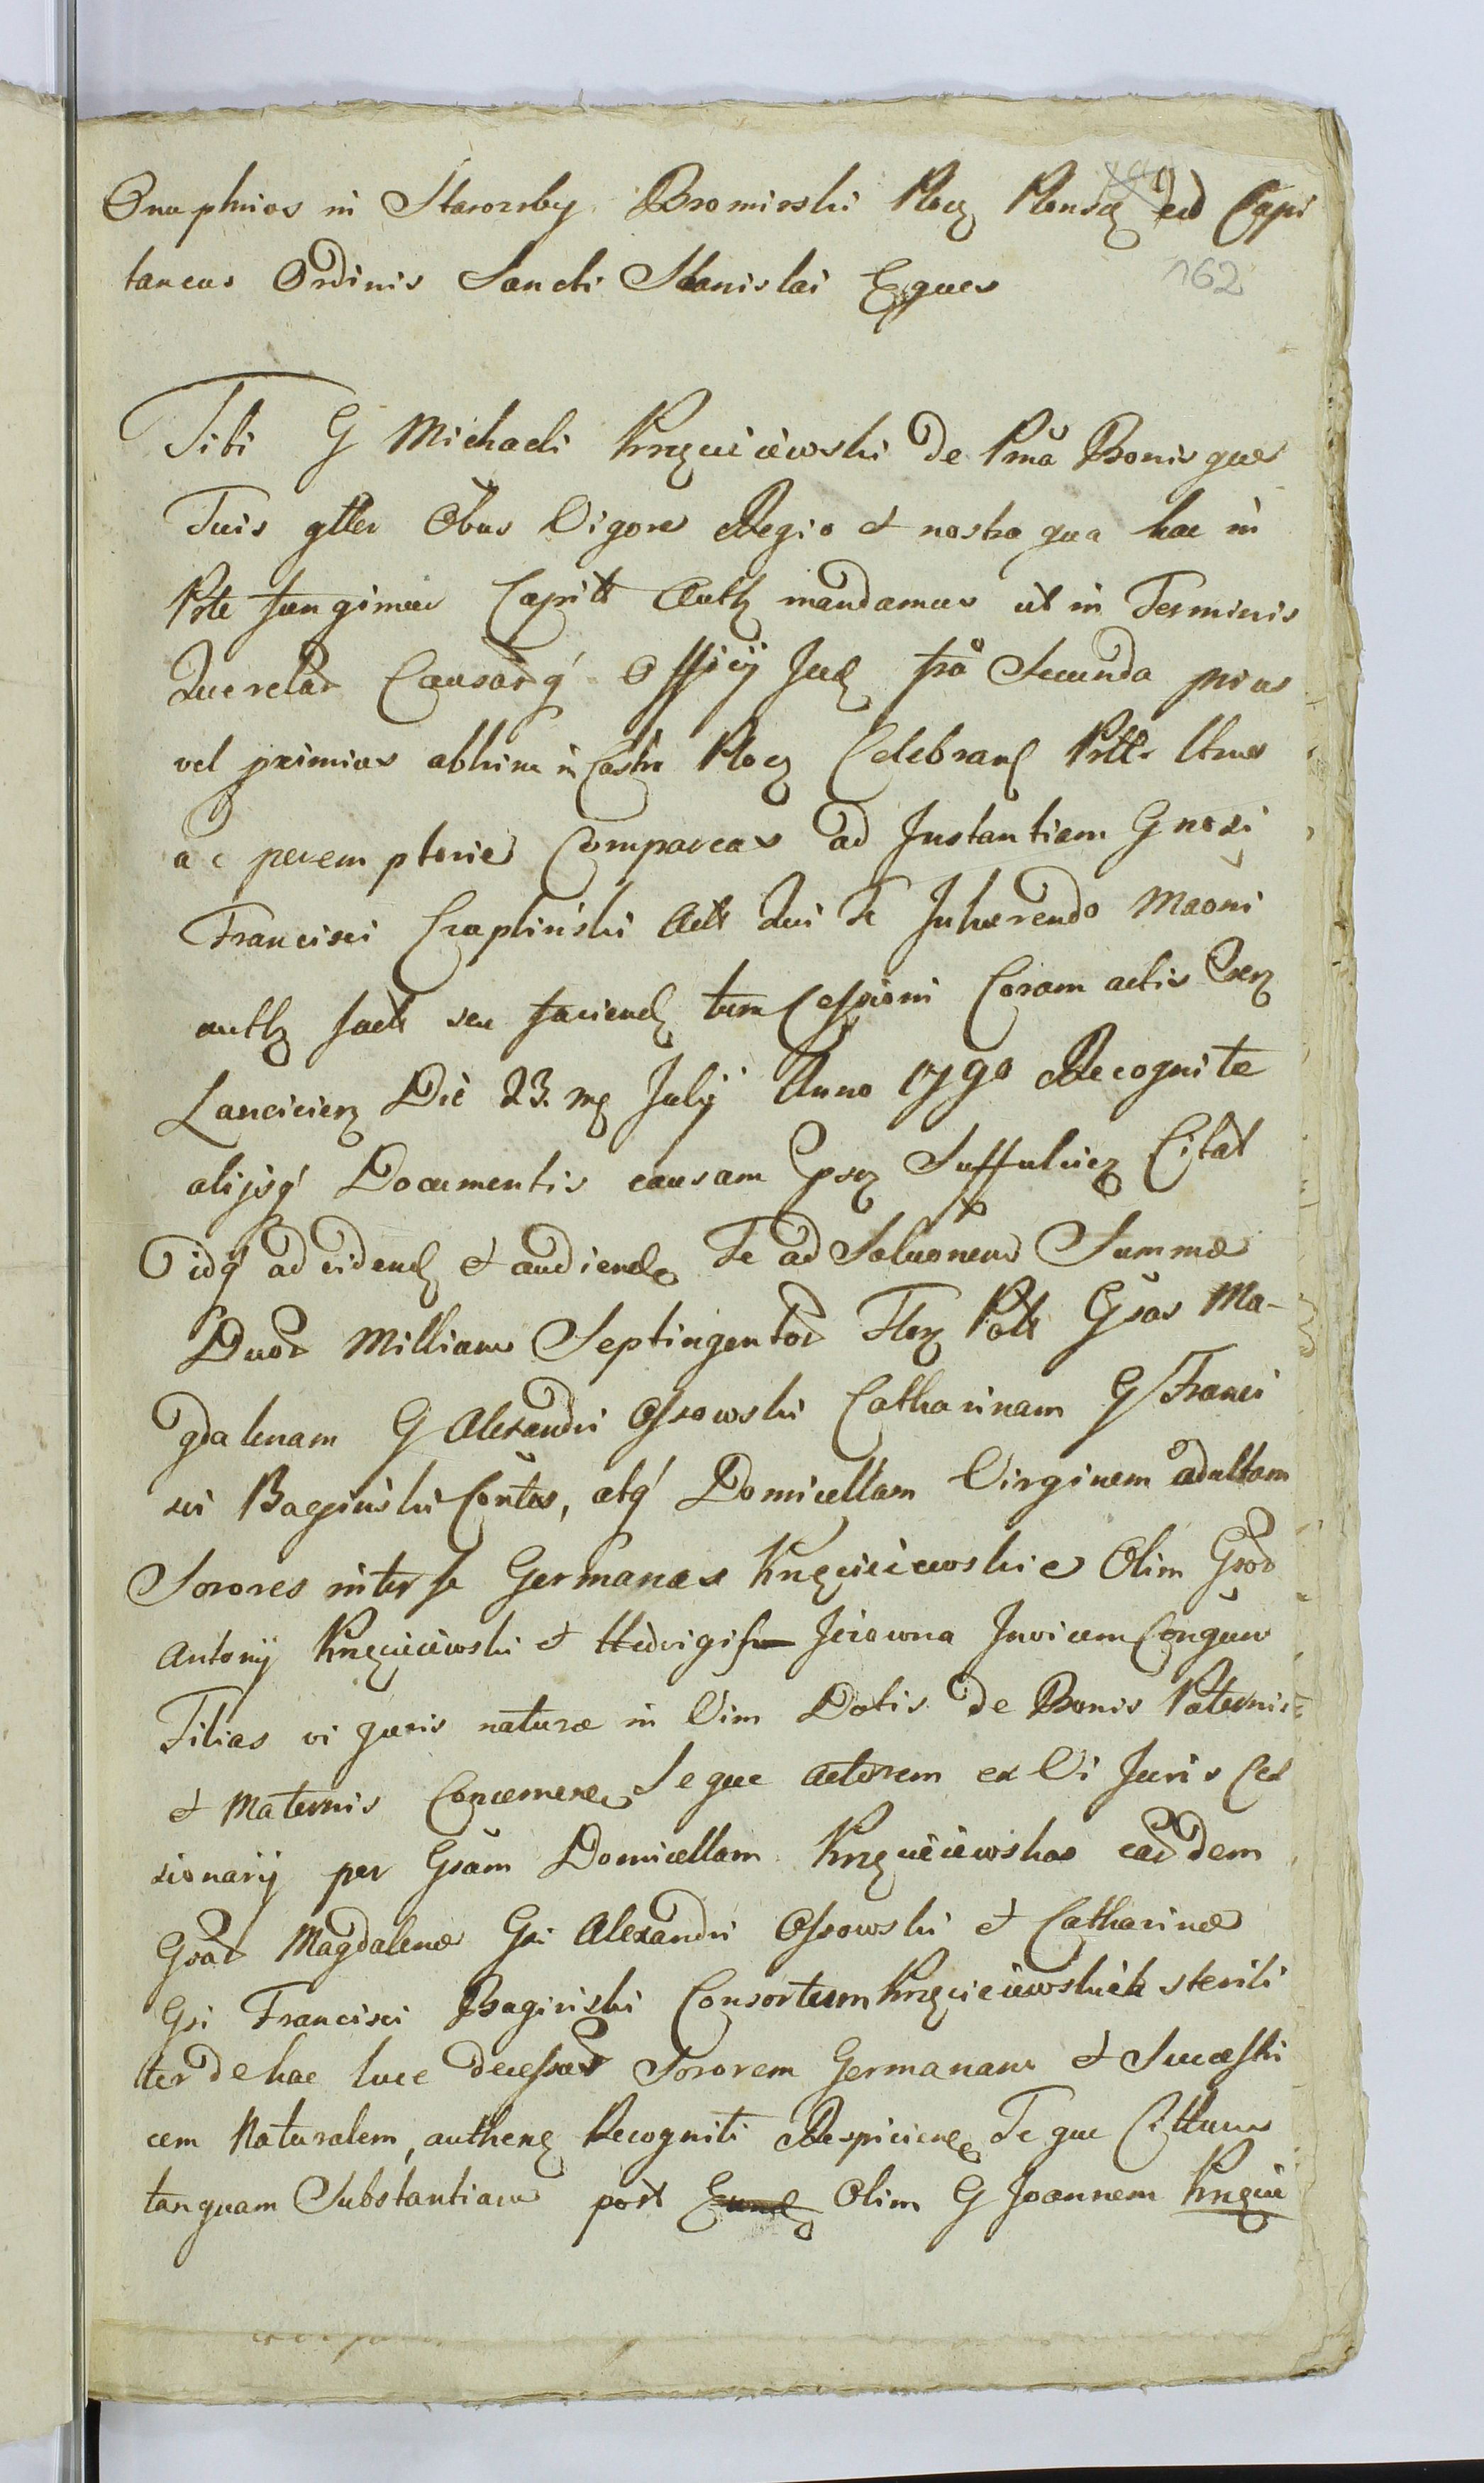 Onuphrius in Starorzby Bromirski Plocq Plonscq ed Capi
162
taneus Ordinis Sancti Stanislai Eques
Tibi G Michaeli Knqciciewski de Pnā Bonisque
Tuis gtler Obus Vigore Regio et nostra qua hac in
Prte fungimur Capitt Auth mandamus ut in Terminis
Querelar Causarq' Officij Jud fra Secunda prius
vel proximius abhinc in Castro Plocq Celebrand Pttr
ac peremptorie Compareas ad Instantiam Gnosi
Francisci Czaplinski Act Qui Te Inhærendo Maoni
authq factt seu faciend tum Cessioni Coram actis
Lanciciens Die 23. mq Julij Anno 1790 Recognitæ
alijsq' Documentis causam Suffulcien Citat
idq' ad videnđ et audiend Te ad Soluonem Summæ
Duor Millium Septingentor Flor Poll Gsas Ma-
gdalenam G Alexandri Ossowski Catharinam G Franci
sci Baginski Contes, atq' Domicellam Virginem adultam
Sorores inter se Germanas Knqciciewskie Olim Gsor
Antonij Knqciciewski et Hedvigis Jeżowna Invicem Congum
Filias vi juris naturæ in Vim Dotis de Bonis Paternis
et Maternis Concernen Seque actorem ex Vi Juris Ces
sionarij per Gsam Domicellam Knqciciewska eardem
Gsar Magdalenæ Gsi Alexandri Ossowski et Catharinæ
Gsi Francisci Baginski Consortum Knqciciewskich sterili
ter de hac luce decessar Sororem Germanam et Successtri
cem Naturalem, authenq Recogniti Respicienq Te que Cittum
tanquam Substantiam post Olim G Joannem Knqcic